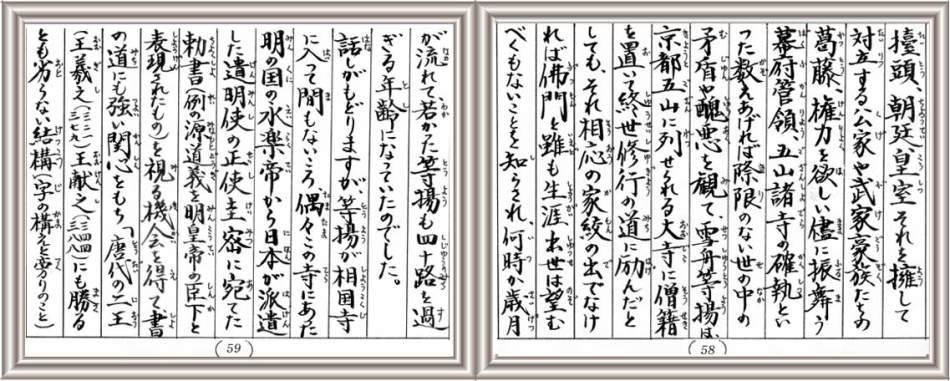 擡頭、朝廷皇室それを擁して
対立する公家や武家豪族たちの
葛藤、権力を欲しい儘に振舞う
幕府管領、五山諸寺の確執とい
った数えあげれば際限のない世の中の
矛盾や醜悪を観て、雪舟等揚は、
京都五山に列せられる大寺に僧籍
を置いて終世修行の道に励んだと
しても、それ相応の家紋の出でなけ
れば佛門と雖も生涯出世は望む
べくもないことを知らされ、何時か歳月
(58)
が流れて若かった等揚も四十路を過
ぎる年齢になっていたのでした。
話しがもどりますが、等揚が相国寺
に入って間もないころ、偶々この寺にあった
明の国の永楽帝から日本が派遣
した遣明使の正使圭密に宛てた
勅書(例の源道義を明皇帝の臣下と
表現されたもの)を視る機会を得て書
の道にも強い関心をもち「唐代の二王
(王羲之(三二一 三七九)王献之(三四四 三八八)にも勝る
とも劣らない結構(字の構えと旁りのこと)
(59)